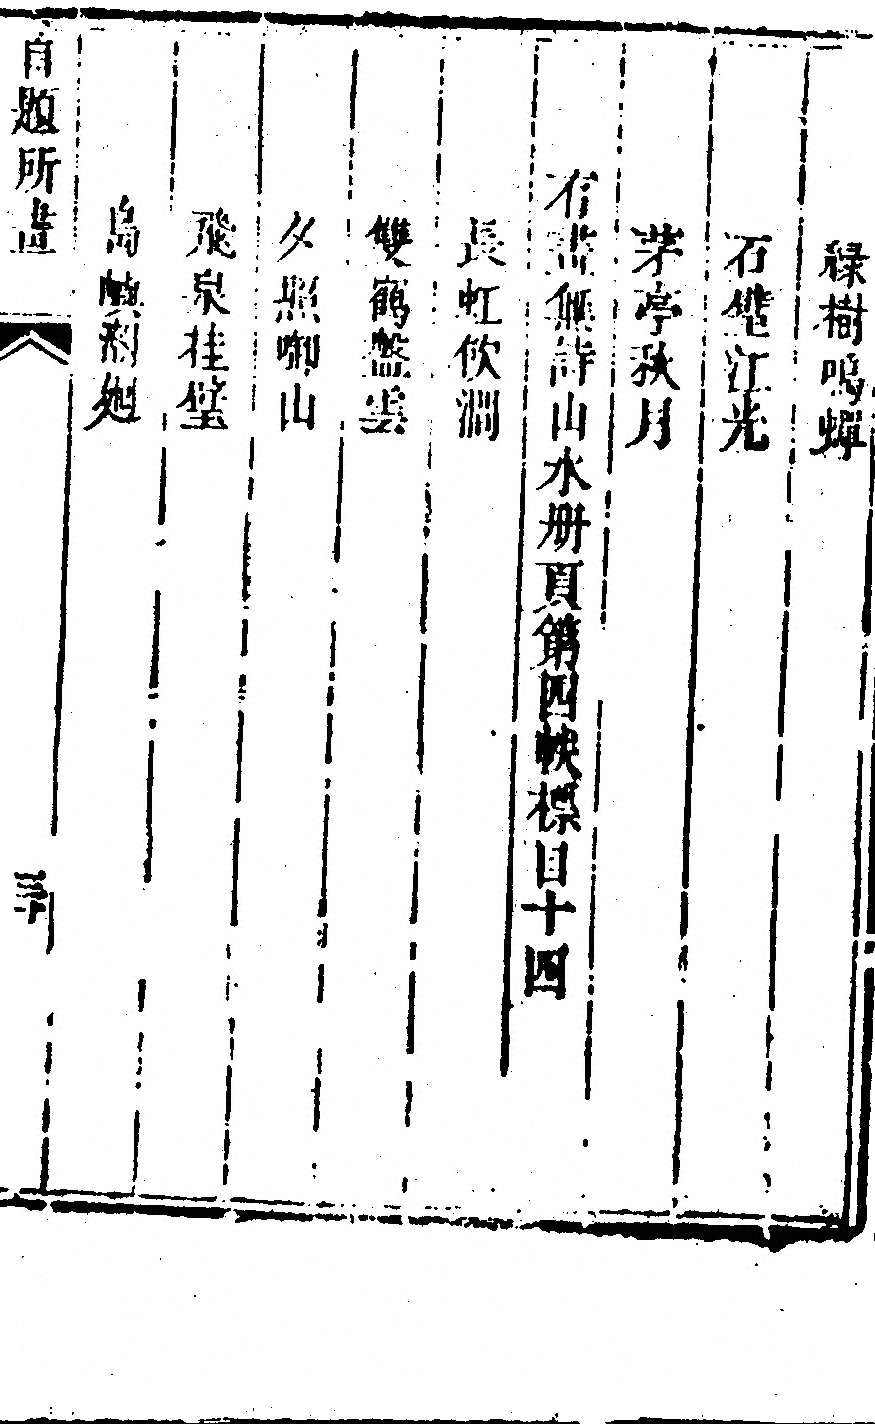 綠樹鳴蟬
石壁江光
茅亭秋月
有畫無詩山水册頁第四帙標目十四
長虹飲澗
雙鶴盤雲
夕照啣山
飛泉挂壁
島嶼瀠廻
自題所畫